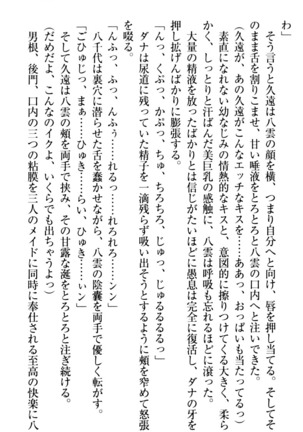 わ」
そう言うと久遠は八雲の顔を横、つまり自分へと向け、唇を押し当てる。そしてそ
のまま舌を割りこませ、甘い唾液をとろとろと八雲の口内へと注いできた。
（久遠が、あの久遠がこんなエッチなキスを……ああっ、おっぱいも当たってるっ）
素直になれない幼なじみの情熱的なキスと、意図的に擦りつけてくる大きく、柔ら
かく、しっとりと汗ばんだ美巨乳の感触に、八雲は呼吸も忘れるほどに滾った。
大量の精液を放ったばかりとは信じがたいほどに愚息は完全に復活し、ダナの牙を
押し拡げんばかりに膨張する。
「んっ、くぷっ、かぷっ、ちゅ、ちろちろ、じゅっ、じゅるるるるっ」
ダナは尿道に残っていた精子を一滴残らず吸い出そうとするように頬を窄めて怒張
を啜る。
「んふっ、ふっ、んふぅ……れるっ……れろれろ……ンン」
八千代は裏穴に潜らせた舌を蠢かせながら、八雲の陰嚢を両手で優しく転がす。
「ごひゅじ、まぁ……ひゅき……らい、ひゅき……ぃン」
そして久遠は八雲の頬を両手で挟み、その甘露な涎をとろとろと注ぎ続ける。
（だめだよ、こんなのイクよ、いくらでも出ちゃうよっ）
男根、後門、口内の三つの粘膜を三人のメイドに同時に奉仕される至高の快楽に八